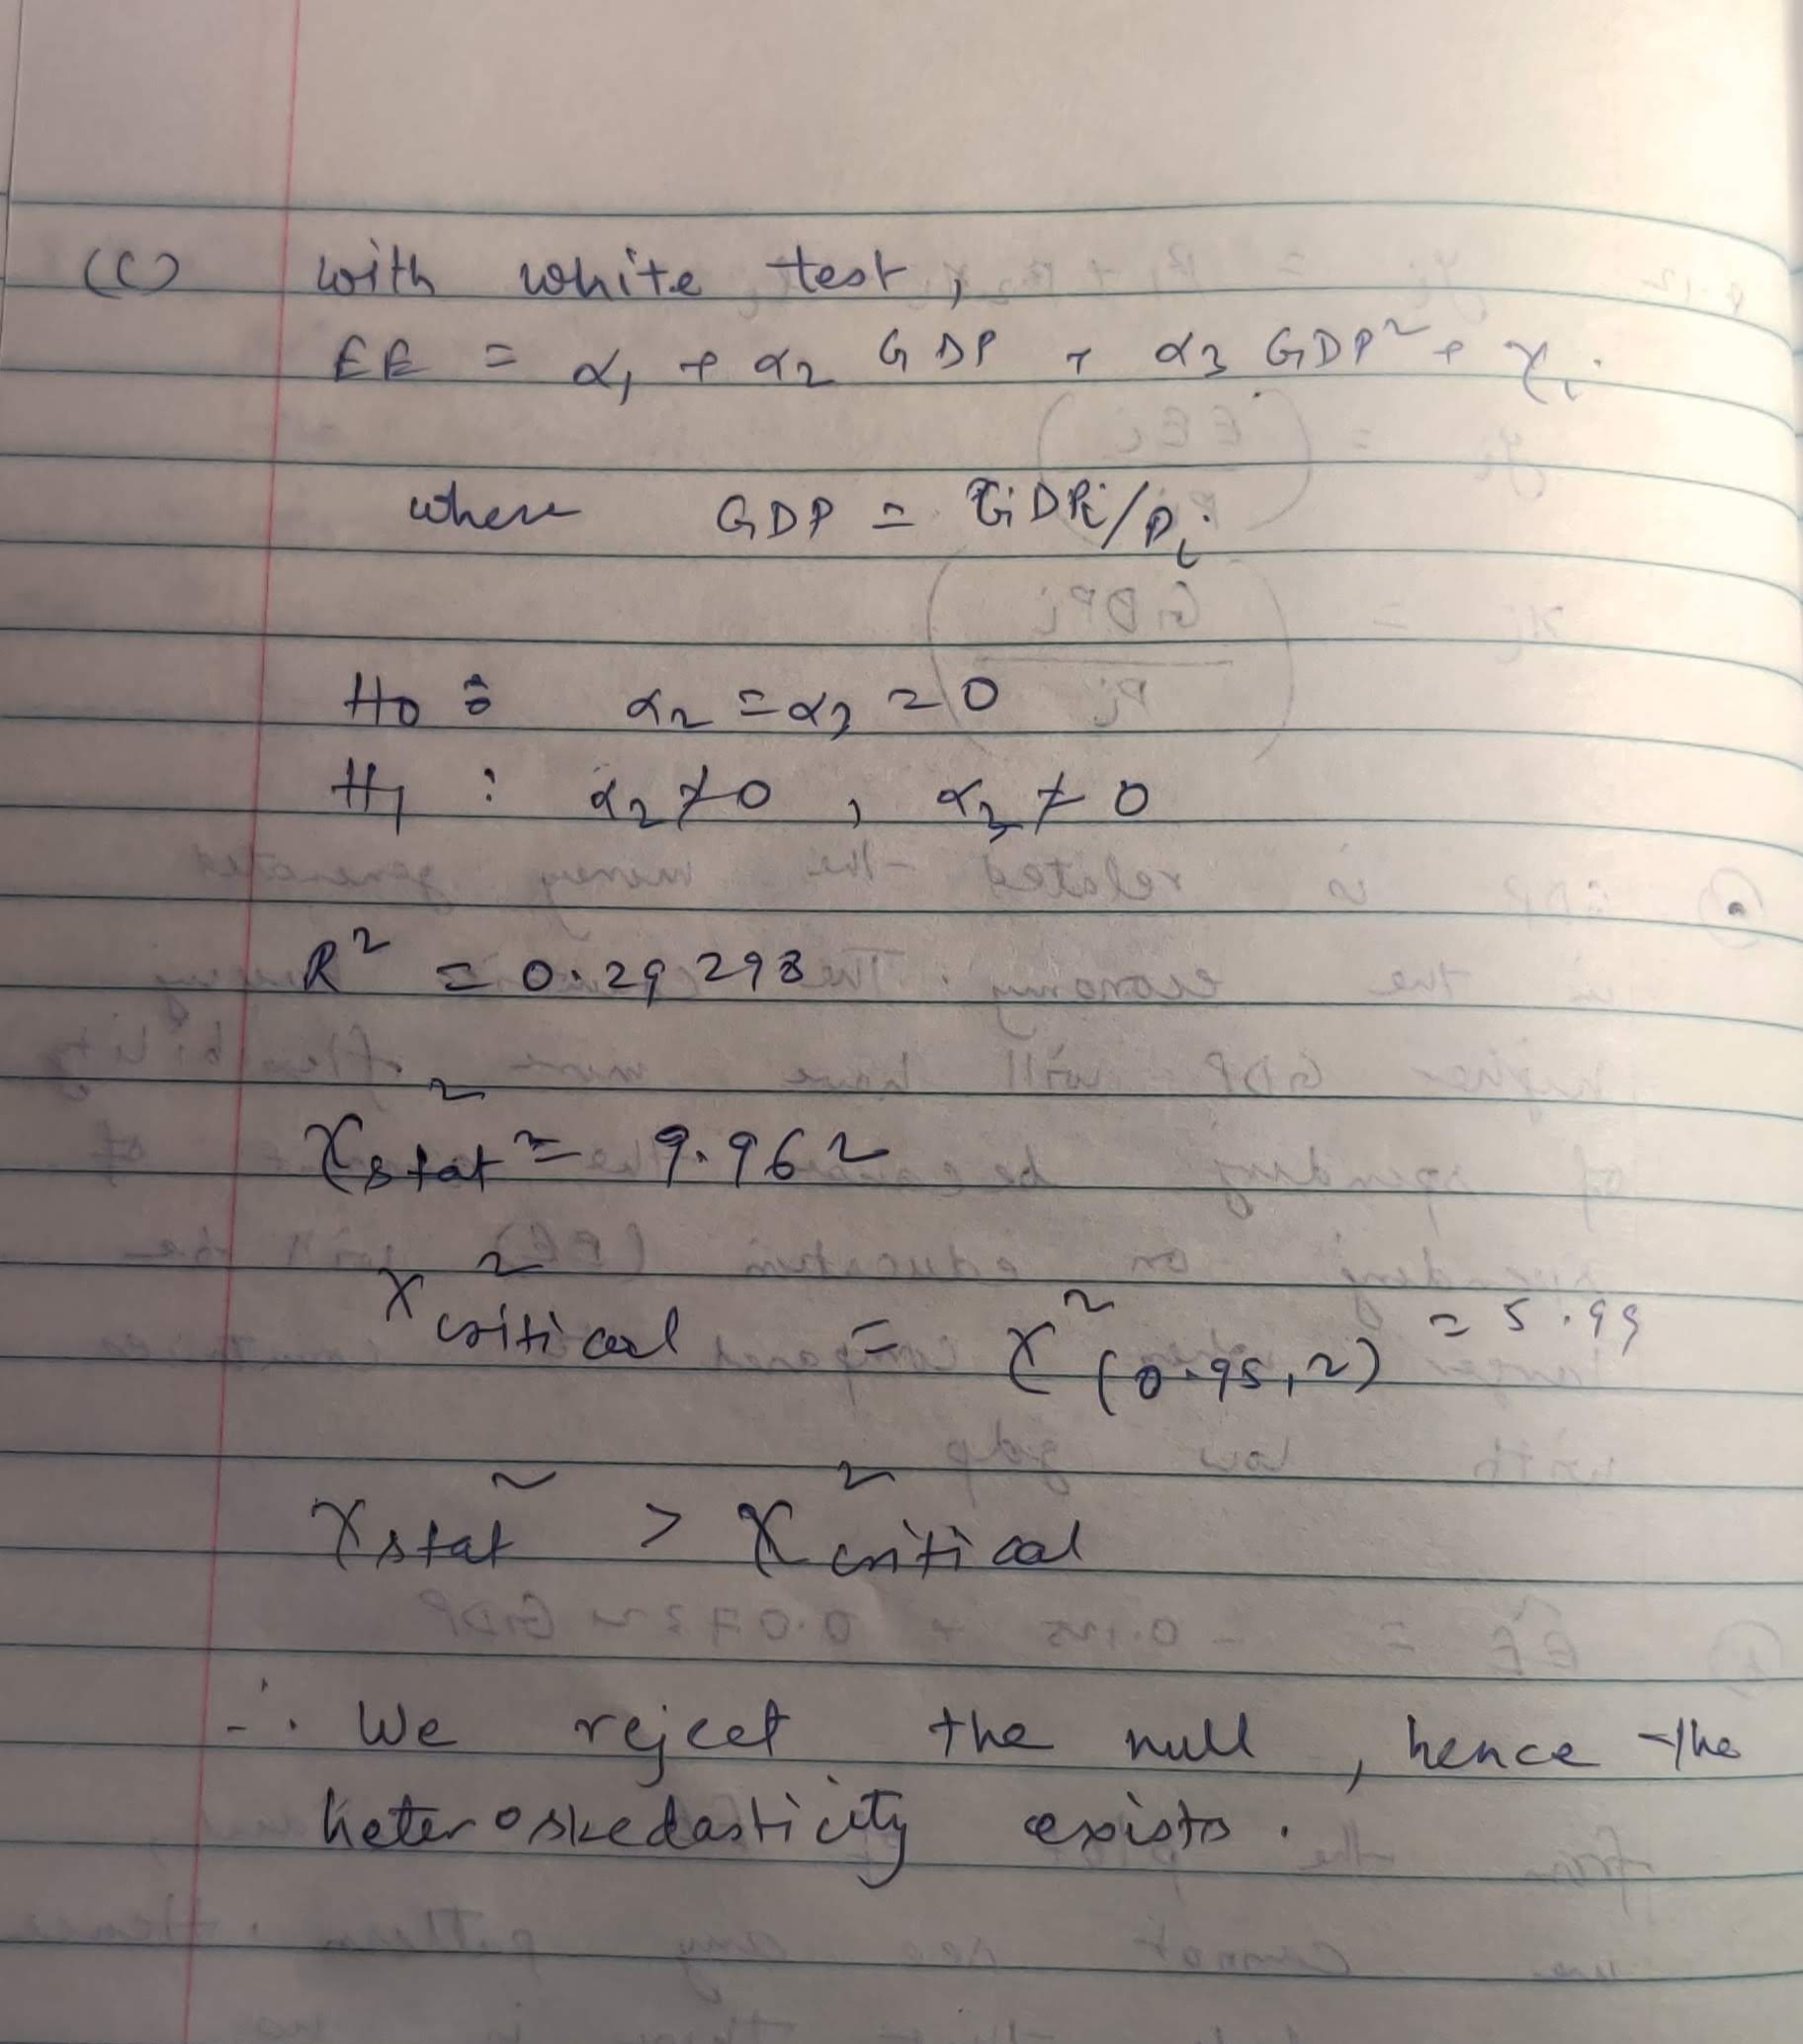 (C) with white test,
EE = α₁ + α₂ GDP + α₃ GDP² + γᵢ
where GDP = GDPᵢ/Pᵢ
H₀ : α₂ = α₃ = 0
H₁ : α₂ ≠ 0 , α₃ ≠ 0
R² = 0.29298
χ²stat = 9.962
χ²critical = χ²(0.95,2) = 5.99
χ²stat > χ²critical
∴ We reject the null, hence the
heteroskedasticity exists.